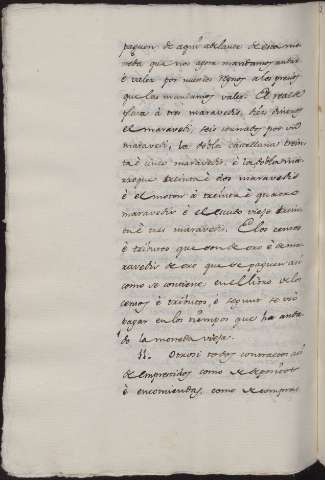 paguen de aqui adelante de esta mo
neda que nos agora mandamos andar
é valer por nuestros Reynos a los precios
que las mandamos valer. El real de
plata á tres maravedis, diez dineros
el maravedi, seis cornados por un
maravedi, la dobla castellana trein
ta é cinco maravedis, é la dobla ma
rroque treinta é dos maravedis
é el moton á treinta é quatro
maravedis é el escudo viejo trein
ta é tres maravedis. E los censos
é tributos que son de oro é de ma
ravedis de oro que se paguen asi
como se contiene en el libro de los
censos é tributos é segunt se usó
pagar en los tiempos que ha anda
do la moneda vieja.
11. Otrosi todos contractos asi
de emprestidos como de deposito
é encomiendas, como de compras